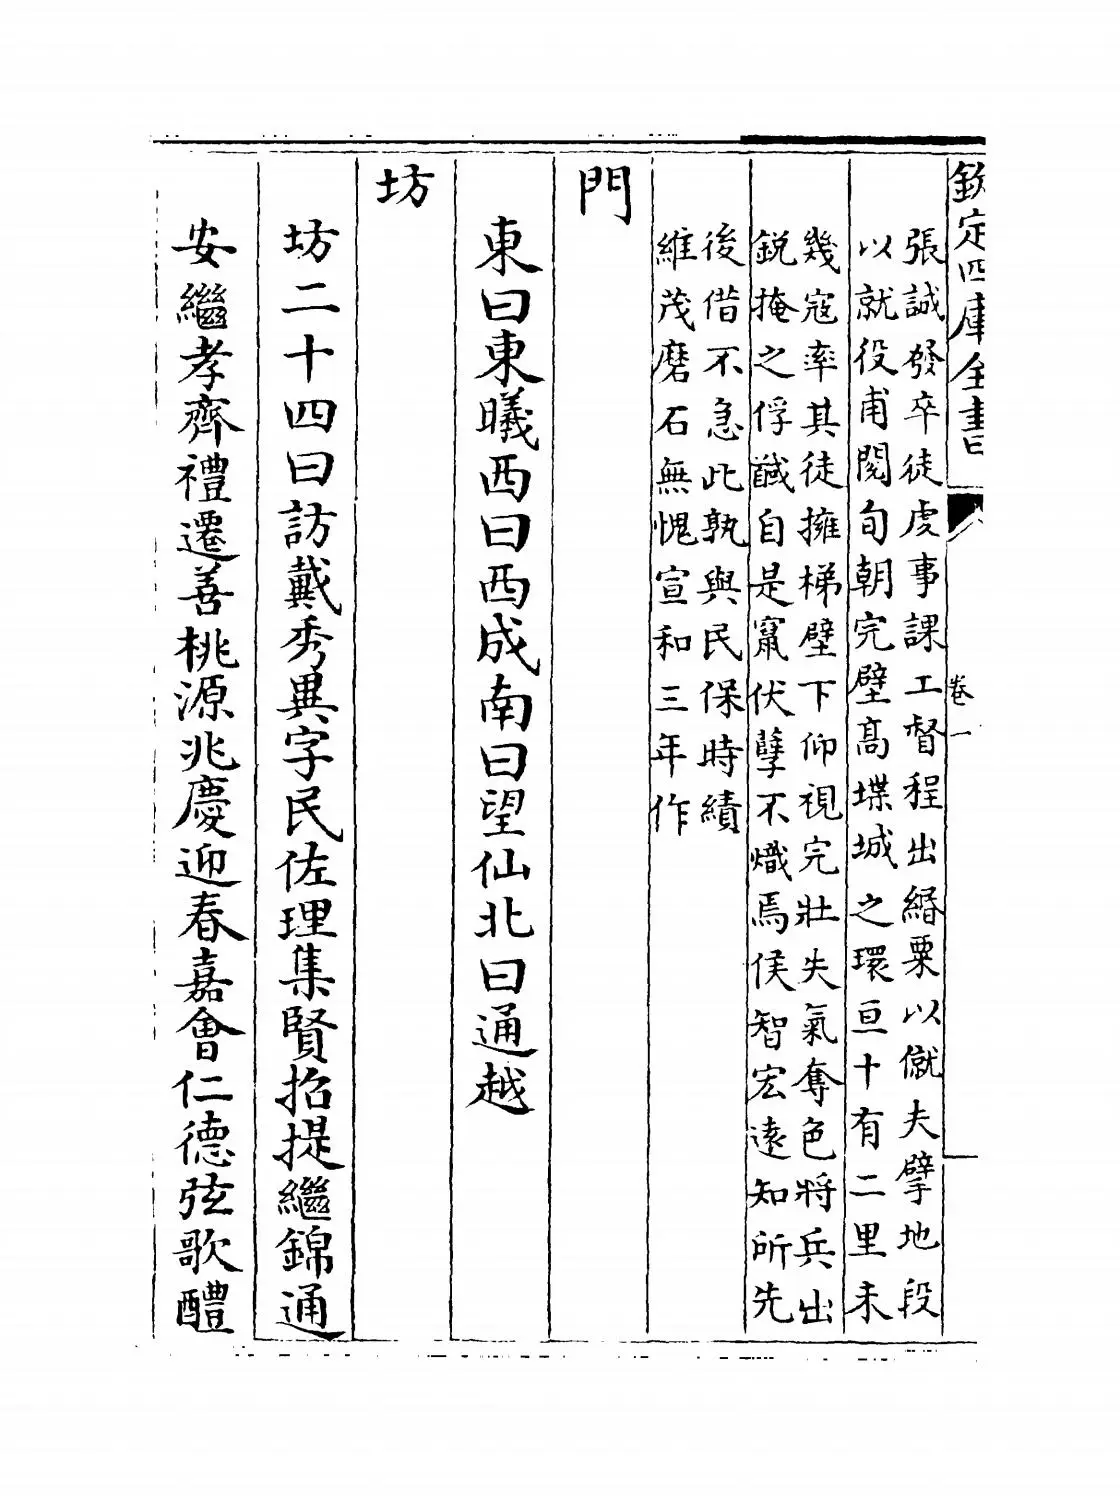 欽定四庫全書
卷一
張誠發卒徒虔事課工督程出緡粟以僦夫擘地段
以就役甫閱旬朝完壁髙堞城之環亘十有二里未
幾寇率其徒擁梯壁下仰視完壯失氣奪色將兵出
鋭掩之俘馘自是竄伏孽不熾焉侯智宏逺知所先
後借不急此孰與民保時績
維茂磨石無愧宣和三年作
門
東曰東曦西曰西成南曰望仙北曰通越
坊
坊二十四曰訪戴秀異字民佐理集賢招提繼錦通
安繼孝齊禮遷善桃源兆慶迎春嘉會仁德弦歌醴